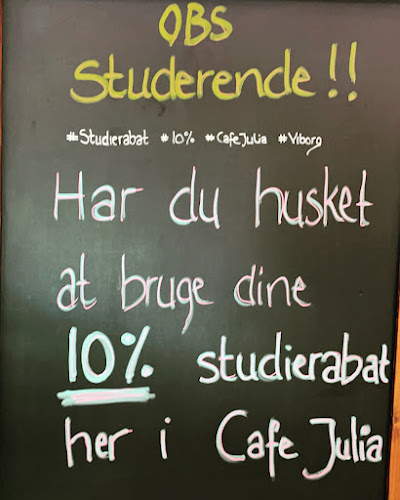 OBS
Studerende!!
#Studierabat #10% #CafeJulia #Viborg
Har du husket
at bruge dine
10% studierabat
her i Cafe Julia